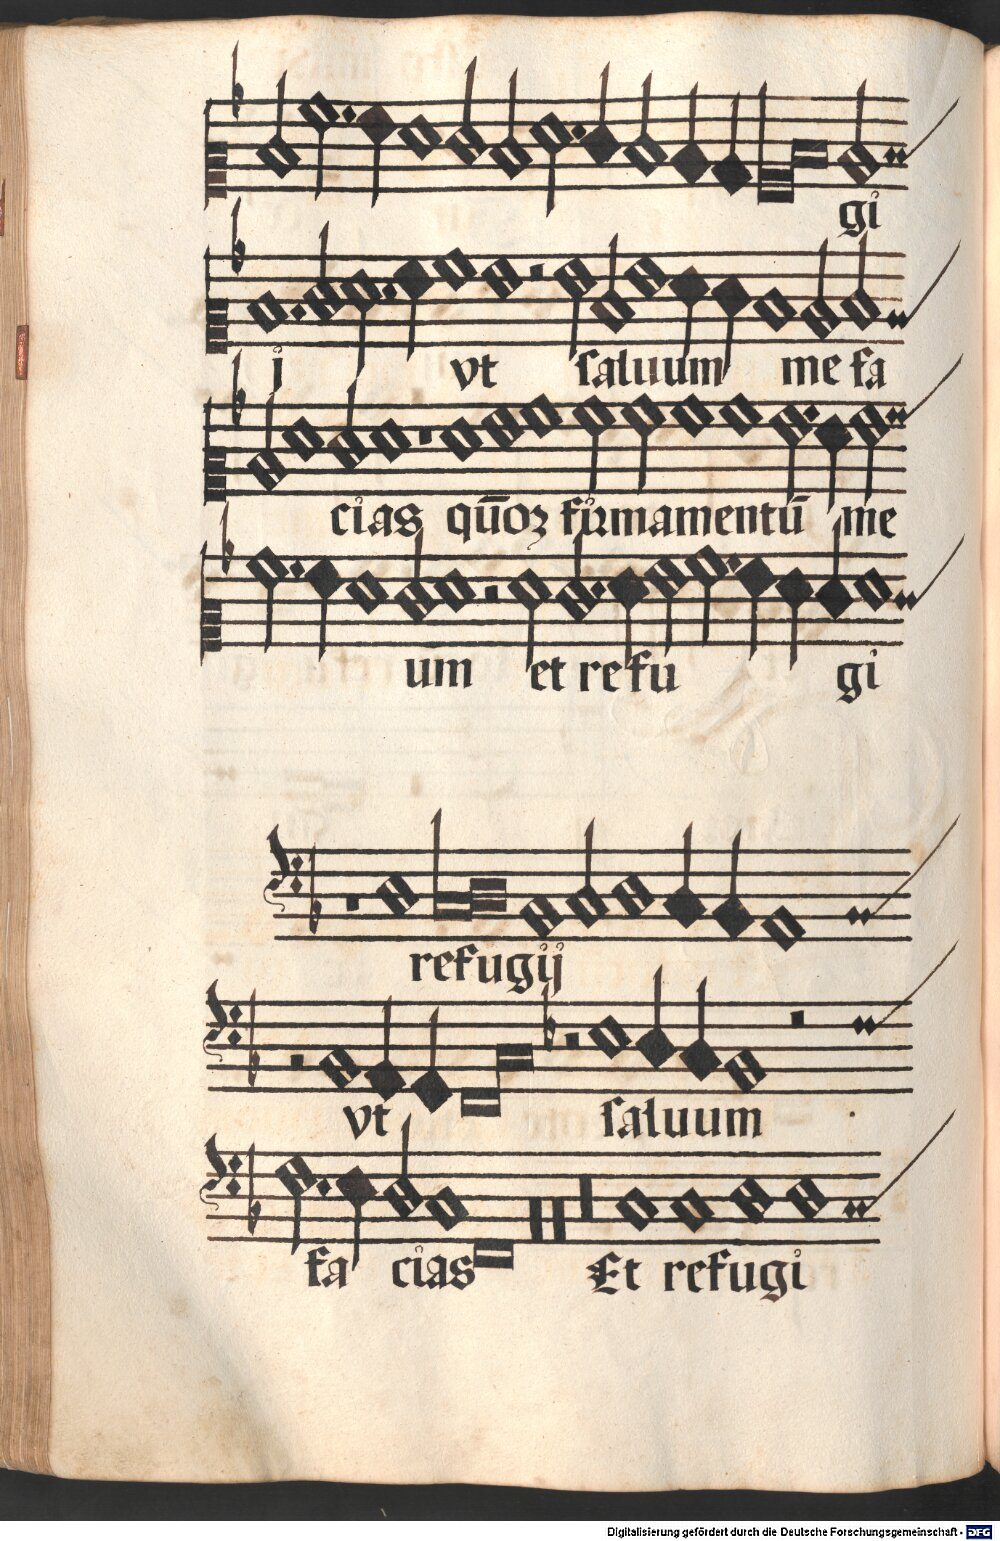 gi
j vt saluum me fa
cias qūoꝫ firmamentū me
um et refu gi
refugij
vt saluum
fa cias Et refugi
Digitalisierung gefördert durch die Deutsche Forschungsgemeinschaft - DFG